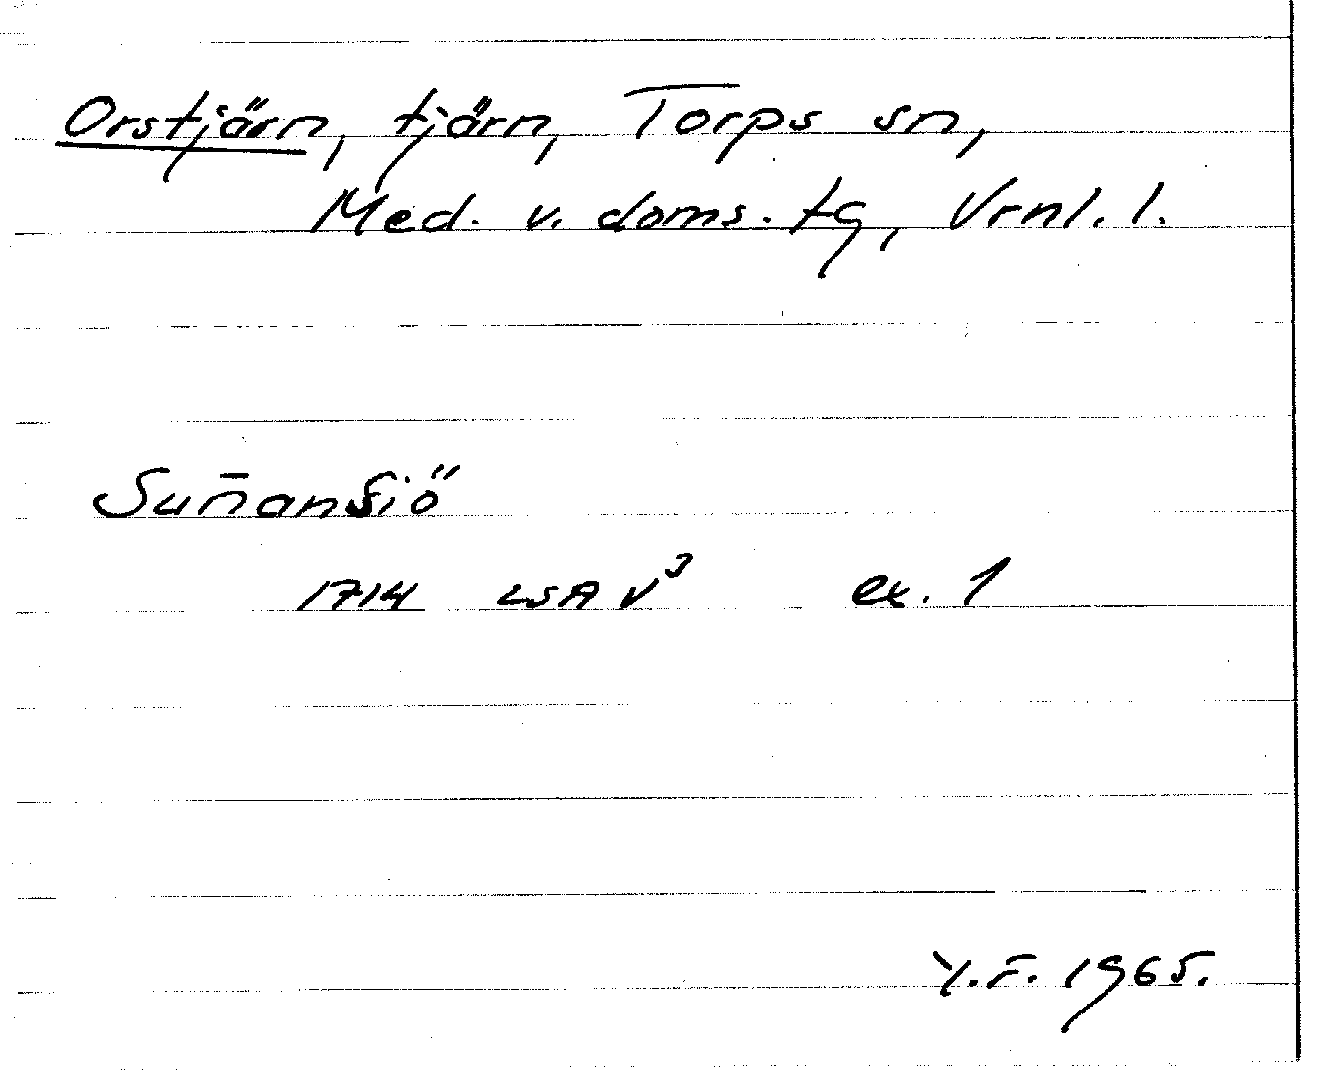 Orstjärn, tjärn, Torps sn,
Med. v. doms. tg, Vrnl. l.
Sun̄anSiö
1714 LSA V³ ex. 1
Y.F. 1965.